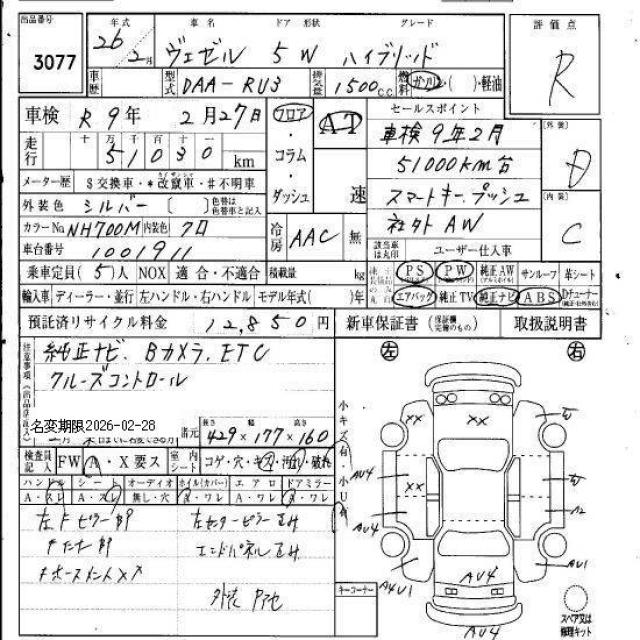 出品番号 年式 車名 ドア 形状 グレード 評価点
3077 26 2月 ヴェゼル 5 W ハイブリッド R
車歴 型式 DAA-RU3 排気量 1500cc 燃料 ガソリン・( )・軽油
車検 R 9年 2月27日 フロア AT セールスポイント
走行 十 万 千 百 十 一 51030 km ・コラム・ダッシュ 速
車検 9年2月
51000km台
スマートキー、プッシュ
社外 AW
外装 D
内装 C
メーター歴 $交換車・*改竄車・#不明車
外装色 シルバー [ ] 色替は元色替車と記入
カラーNo NH700M 内装色 クロ 冷房 AAC 無
該当車は丸印 ユーザー仕入車
車台番号 1001911
乗車定員(5)人 NOX 適合・不適合 積載量 kg
PS PW 純正AW サンルーフ 革シート
輸入車 ディーラー・並行 左ハンドル・右ハンドル モデル年式( )年 エアバッグ 純正TV 純正ナビ ABS Dチューナー
預託済リサイクル料金 12,850円 新車保証書(保証欄完備のもの) 取扱説明書
注意事項(出品店記入)
純正ナビ、Bカメラ、ETC
クルーズコントロール
名変期限2026-02-28
諸元 長さ 429 × 幅 177 × 高さ 160
検査員記入 FW A・X要ス 室内シート コゲ・穴・キズ・汚れ・破れ
ハンドル シート オーディオ ホイル(カバー) エアロ ドアミラー
A・スレ A・スレ 無し・穴 A・ワレ A・ワレ A・ワレ
左Fピラー
左センターピラー
エンドパネル
外装
小キズ有・小U有
左 右
XX XX
AU4
XX
AU4
A4U1 AU4 AU1
AU4
キーコーナー
スペア又は修理キット